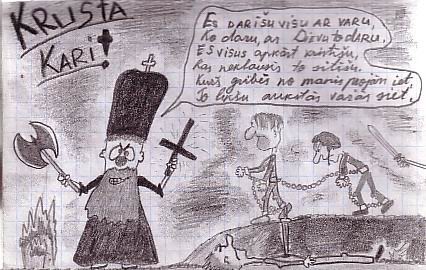 KRUSTA
KARI!
ES DARĪŠU VISU AR VARU,
Ko daru, ar Dievu to daru,
ES visus apkārt kristīšu,
kas neklausīs, to sitīšu,
kurš gribēs no manis projām iet,
To likšu aukstās važās siet.